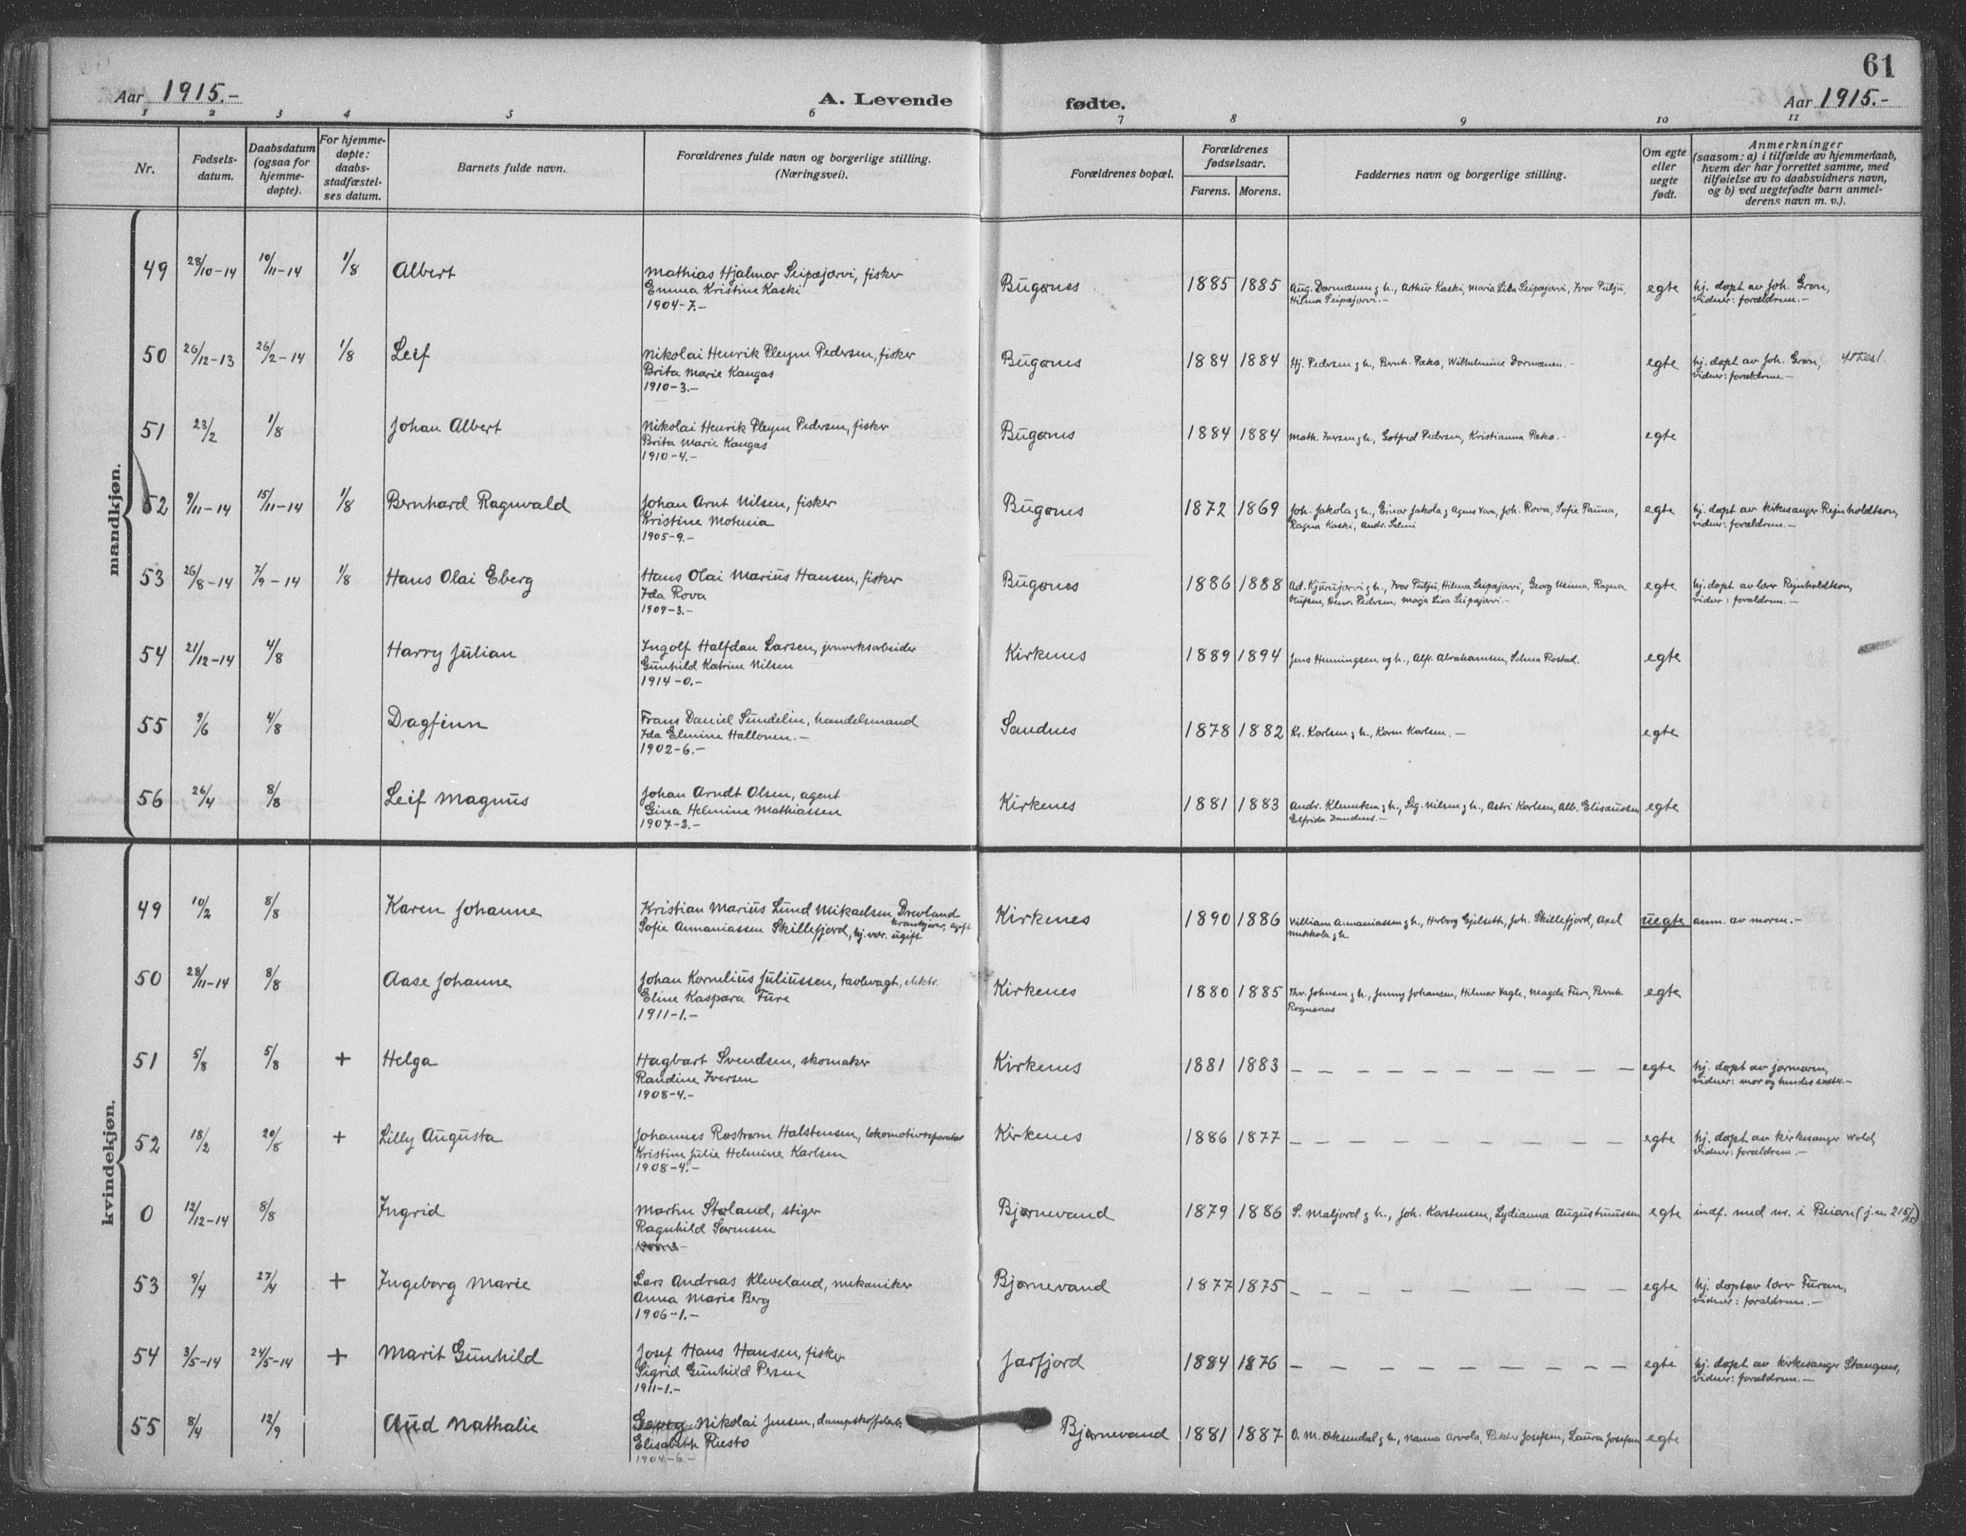 61
Aar 1915.-
A. Levende
fødte.
Aar 1915.-
1 2 3 4 5 6 7 8 9 10 11
Nr.
Fødsels-
datum.
Daabsdatum
(ogsaa for
hjemme-
døpte).
For hjemme-
døpte:
daabs-
stadfæstel-
ses datum.
Barnets fulde navn.
Forældrenes fulde navn og borgerlige stilling.
(Næringsvei).
Forældrenes bopæl.
Forældrenes
fødselsaar.
Farens. Morens.
Faddernes navn og borgerlige stilling.
Om egte
eller
uegte
født.
Anmerkninger
(saasom: a) i tilfælde av hjemmedaab,
hvem der har forrettet samme, med
tilføielse av to daabsvidners navn,
og b) ved uegtefødte barn anmel-
derens navn m. v.).
mandkjøn.
49 28/10-14 10/11-14 1/8 Albert
Mathias Hjalmar Seipæjærvi, fisker
Emma Kristine Kaski
1904-7.-
Bugønes 1885 1885
Aug. Dørmænen & h., Arthur Kaski, Maria Lisa Seipæjærvi, Ivar Pulju,
Hilma Seipæjærvi.-
egte
hj. døpt av Joh. Grøn,
vidner: forældrene.-
50 26/12-13 26/2-14 1/8 Leif
Nikolai Henrik Pleym Pedersen, fisker
Brita Marie Kangas
1910-3.-
Bugønes 1884 1884
Hj. Pedersen & h., Bernh. Pækø, Wilhelmine Dørmænen.-
egte
hj. døpt av Joh. Grøn,
vidner: forældrene.-
51 23/2 1/8 Johan Albert
Nikolai Henrik Pleym Pedersen, fisker
Brita Marie Kangas
1910-4.-
Bugønes 1884 1884
Math. Iversen & h., Gotfred Pedersen, Kristianna Pækø.-
egte
52 9/11-14 15/11-14 1/8 Bernhard Ragnvald
Johan Arnt Nilsen, fisker
Kristine Motunia
1905-9.-
Bugønes 1872 1869
Joh. Jakola & h., Einar Jakola & Agnes Vara, Joh. Rova, Sofie Pauna,
Ragna Kaski, Andr. Selmi
egte
hj. døpt av kirkesanger Rejnholdtsen,
vidner: forældrene.-
53 26/8-14 7/9-14 1/8 Hans Olai Eberg
Hans Olai Marius Hansen, fisker
Ida Rova
1909-3.-
Bugønes 1886 1888
Ad. Kjurujærvi & h., Ivar Pulju, Hilma Seipæjærvi, Georg Usima, Ragna
Olufsen, Henr. Pedersen, Maja Lisa Seipæjærvi.-
egte
hj. døpt av lærer Rejnholdtsen,
vidner: forældrene.-
54 21/12-14 4/8 Harry Julian
Ingolf Halfdan Larsen, jernverksarbeider
Gunhild Katrine Nilsen
1914-0.-
Kirkenes 1889 1894
Jens Henningsen og h., Alfr. Abrahamsen, Selma Rostad.
egte
55 9/6 4/8 Dagfinn
Frans Daniel Sundelin, handelsmand
Ida Elmine Hallonen.-
1902-6.-
Sandnes 1878 1882
Kr. Karlsen & h., Karen Karlsen.-
egte
56 26/4 8/8 Leif Magnus
Johan Arndt Olsen, agent
Gina Helmine Mathiassen
1907-2.-
Kirkenes 1881 1883
Andr. Klemetsen & h., Sig. Nilsen & h., Astri Karlsen, Alb. Elisæussen
Elfrida Sandnes.-
egte
kvindekjøn.
49 10/2 8/8 Karen Johanne
Kristian Marius Lund Mikaelsen, Drevland
krankjører, ugift
Sofie Annaniassen Skillefjord, hj. vær. ugift
Kirkenes 1890 1886
Villiam Annaniassen & h., Herborg Gjelseth, Joh. Skillefjord, Axel
Mikkola & h.
uegte anm. av moren.-
50 28/11-14 8/8 Aase Johanne
Johan Kornelius Juliussen, tavlevagt, elektr.
Eline Kaspara Fure
1911-1.-
Kirkenes 1880 1885
Thv. Johnsen & h., Jenny Johansen, Hilmar Vagle, Magda Fure, Bernh.
Rognsaas
egte
51 5/8 5/8 + Helga
Hagbart Svendsen, skomaker
Randine Iversen
1908-4.-
Kirkenes 1881 1883
egte
hj. døpt av jormoren,
vidner: mor og hendes søster.-
52 18/2 20/8 + Lilly Augusta
Johannes Rostrøm Halstensen, lokomotivreparatør
Kristine Julie Helmine Karlsen
1908-4.-
Kirkenes 1886 1877
egte
hj. døpt av kirkesanger Wold,
vidner: forældrene.-
0 12/12-14 8/8 Ingrid
Martin Støland, stiger
Ragnhild Sørensen
Bjørnevand 1879 1886
S. Maljord & h., Joh. Karstensen, Lydianna Augustinussen
egte indf. med nr. i Beiarn (j.nr. 215/15)
53 9/4 27/4 + Ingeborg Marie
Lars Andreas Kleveland, mekaniker
Anna Marie Berg
1906-1.-
Bjørnevand 1877 1875
egte
hj. døpt av lærer Furan,
vidner: forældrene.-
54 3/5-14 24/5-14 + Marit Gunhild
Josef Hans Hansen, fisker
Sigrid Gunhild Persen
1911-1.-
Jarfjord 1884 1876
egte
hj. døpt av kirkesanger Stangnes,
vidner: forældrene.-
55 8/4 12/9 Aud Nathalie
Georg Nikolai Jensen, dampskoffelarb.
Elisabeth Riesto
1904-6-
Bjørnevand 1881 1887
O. M. Øksendal & h., Nanna Arvola, Petter Josefsen, Laura Josefsen
egte